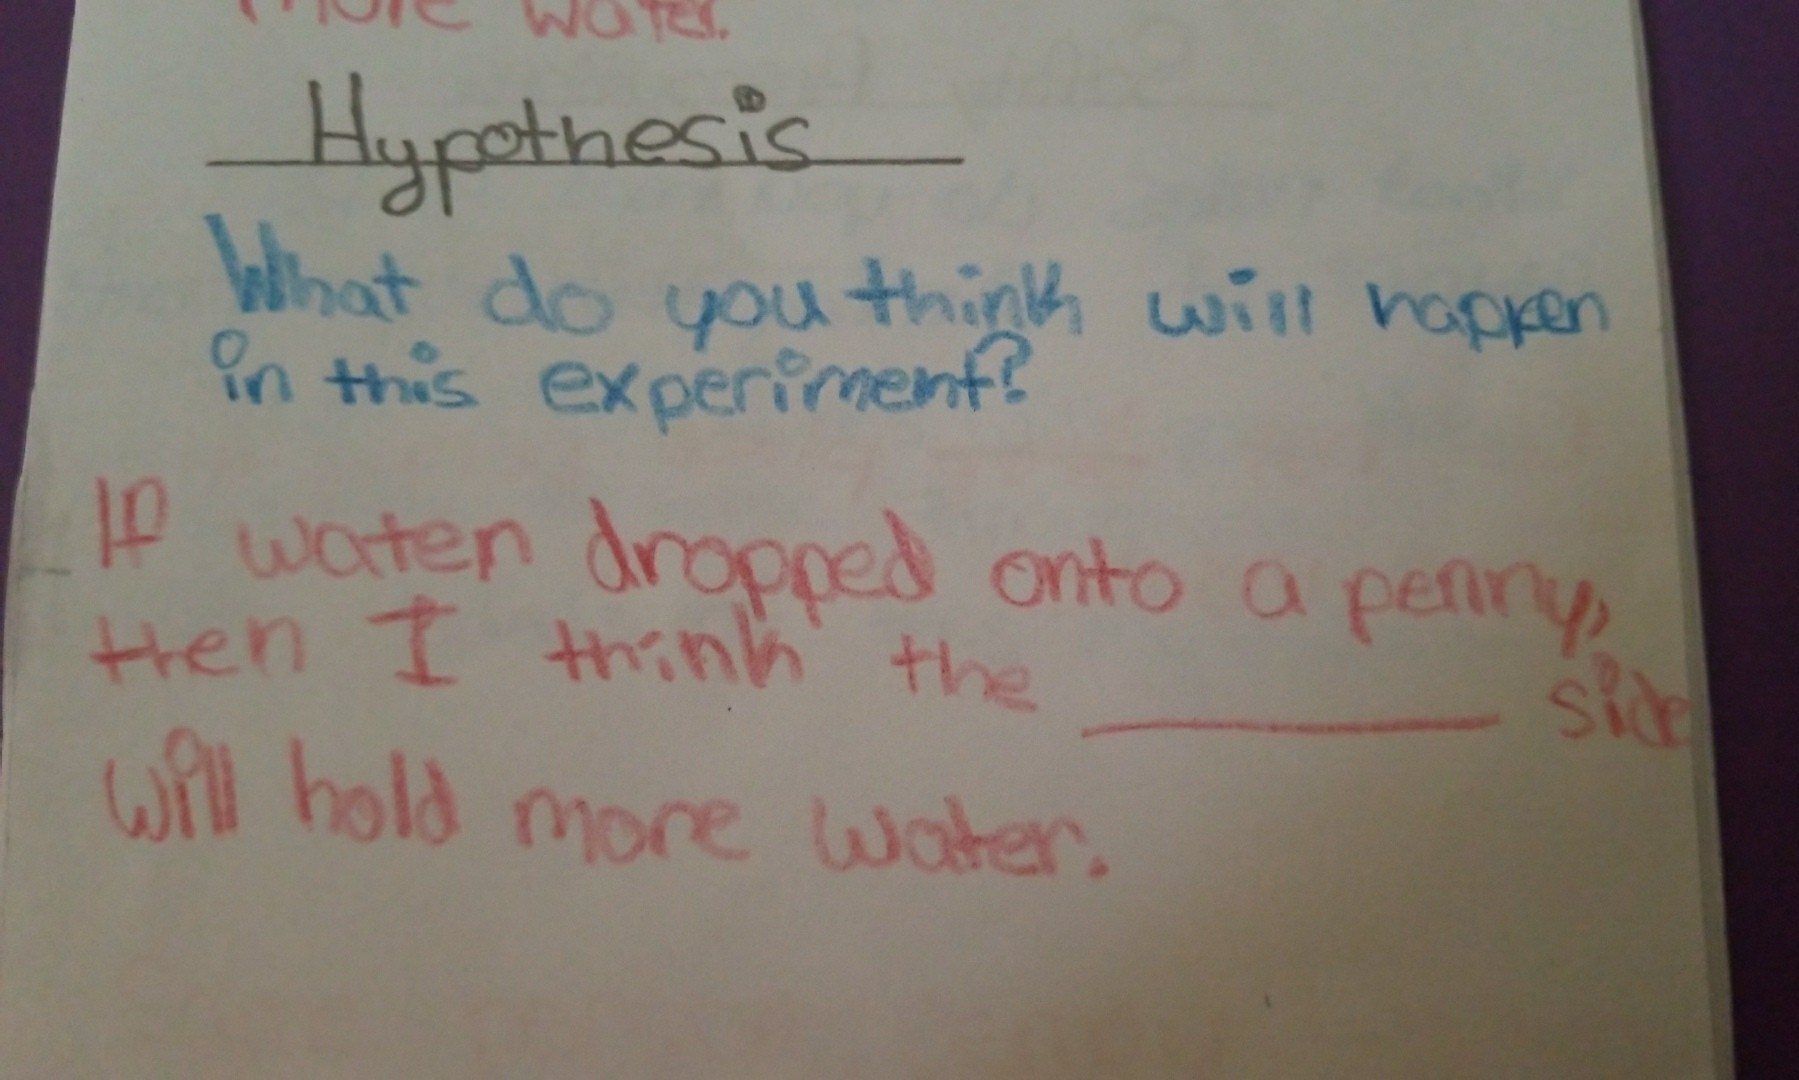 more water.
Hypothesis
What do you think will happen
in this experiment?
If water dropped onto a penny,
then I think the ________ side
will hold more water.